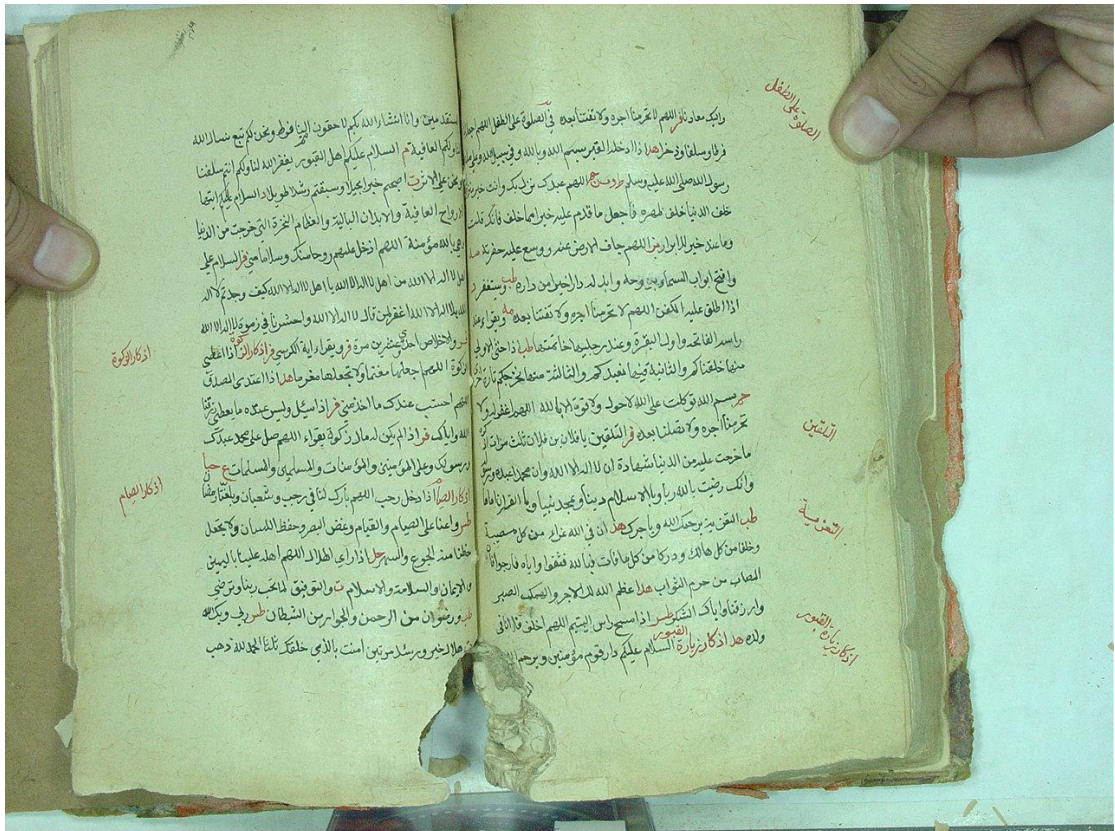 الصلوة على الطفل
اللهم لا تحرمنا اجره ولا تفتنا بعده في الصلوة على الطفل اللهم اجعله
فرطا وسلفا وذخرا هد اذا ادخله القبر بسم الله وبالله وفي سبيل الله وعلى ملة
رسول الله صلى الله عليه وسلم اللهم عبدك نزل بك وانت خير منزول
خلف الدنيا خلف ظهره فاجعل ما قدم عليه خيرا مما خلف فانك قلت
وما عند الله خير للابرار اللهم جاف الارض عنه ووسع عليه حفرته
وافتح ابواب السماء لروحه وابدله دارا خيرا من داره طب ويستغفر
اذا اطلق عليه الكفن اللهم لا تحرمنا اجره ولا تفتنا بعده ويقراء عند
راسه الفاتحة واول البقرة وعند رجليها خاتمتها طب اذا حثى الاولى
منها خلقناكم والثانية وفيها نعيدكم والثالثة ومنها نخرجكم تارة اخرى
بسم الله توكلت على الله لا حول ولا قوة الا بالله اللهم اغفر له ولا
تحرمنا اجره ولا تضلنا بعده فر التلقين يا فلان بن فلان ثلث مرات اذكر
التلقين
ما خرجت عليه من الدنيا شهادة ان لا اله الا الله وان محمدا عبده ورسوله
وانك رضيت بالله ربا وبالاسلام دينا وبمحمد نبيا وبالقران اماما
التعزية
طب التعزية يرحمك الله وياجرك هد ان في الله عزاء من كل مصيبة
وخلفا من كل هالك ودركا من كل ما فات فبالله فثقوا واياه فارجوا فانما
المصاب من حرم الثواب هد اعظم الله لك الاجر والهمك الصبر
وارزقنا واياك الشكر طس اذا مسح راس اليتيم اللهم اخلف
اذكار زيارة القبور
ولده هد اذكار زيارة القبور السلام عليكم دار قوم مؤمنين ويرحم الله
المستقدمين وانا انشاء الله بكم لاحقون انتم لنا فرط ونحن لكم تبع نسال الله
لنا ولكم العافية م السلام عليكم اهل القبور يغفر الله لنا ولكم انتم سلفنا
ونحن على الاثر ت اصبتم خيرا بجيلا وسبقتم شرا طويلا السلام عليكم ايتها
الارواح الفانية والابدان البالية والعظام النخرة التي خرجت من الدنيا
وهي بالله مؤمنة اللهم ادخل عليهم روحا منك وسلاما مني فر السلام على
اهل لا اله الا الله من اهل لا اله الا الله يا اهل لا اله الا الله كيف وجدتم لا اله
الا الله يا لا اله الا الله اغفر لمن قال لا اله الا الله واحشرنا في زمرة لا اله الا الله
فر والاخلاص احدى وعشرين مرة فر ويقراء اية الكرسي فر اذكار الزكوة اذا اعطى
اذكار الزكوة
الزكوة اللهم اجعلها مغنما ولا تجعلها مغرما هد اذا اعتدى المصدق
اللهم احتسب عندك ما اخذ مني فر اذا سئل وليس عنده ما يعطى رزقنا
الله واياك فر اذا لم يكن له مال زكوة يقراء اللهم صل على محمد عبدك
ورسولك وعلى المؤمنين والمؤمنات والمسلمين والمسلمات ع حب
اذكار الصيام
اذكار الصيام اذا دخل رجب اللهم بارك لنا في رجب وشعبان وبلغنا رمضان
طس واعنا على الصيام والقيام وغض البصر وحفظ اللسان ولا تجعل
حظنا منه الجوع والسهر حل اذا راى الهلال اللهم اهله علينا باليمن
والايمان والسلامة والاسلام ت والتوفيق لما تحب ربنا وترضى
طب ورضوان من الرحمن والجوار من الشيطان طس ربي وربك الله
هلال خير ورشد مرتين امنت بالذي خلقك ثلثا الحمد لله ذهب